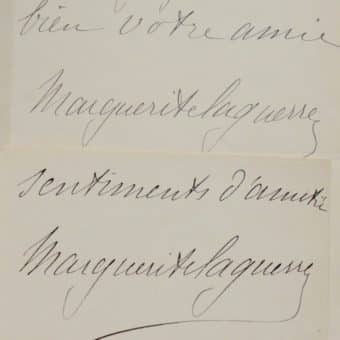 bien votre amie
Marguerite Laguerre
sentiments d'amitié
Marguerite Laguerre